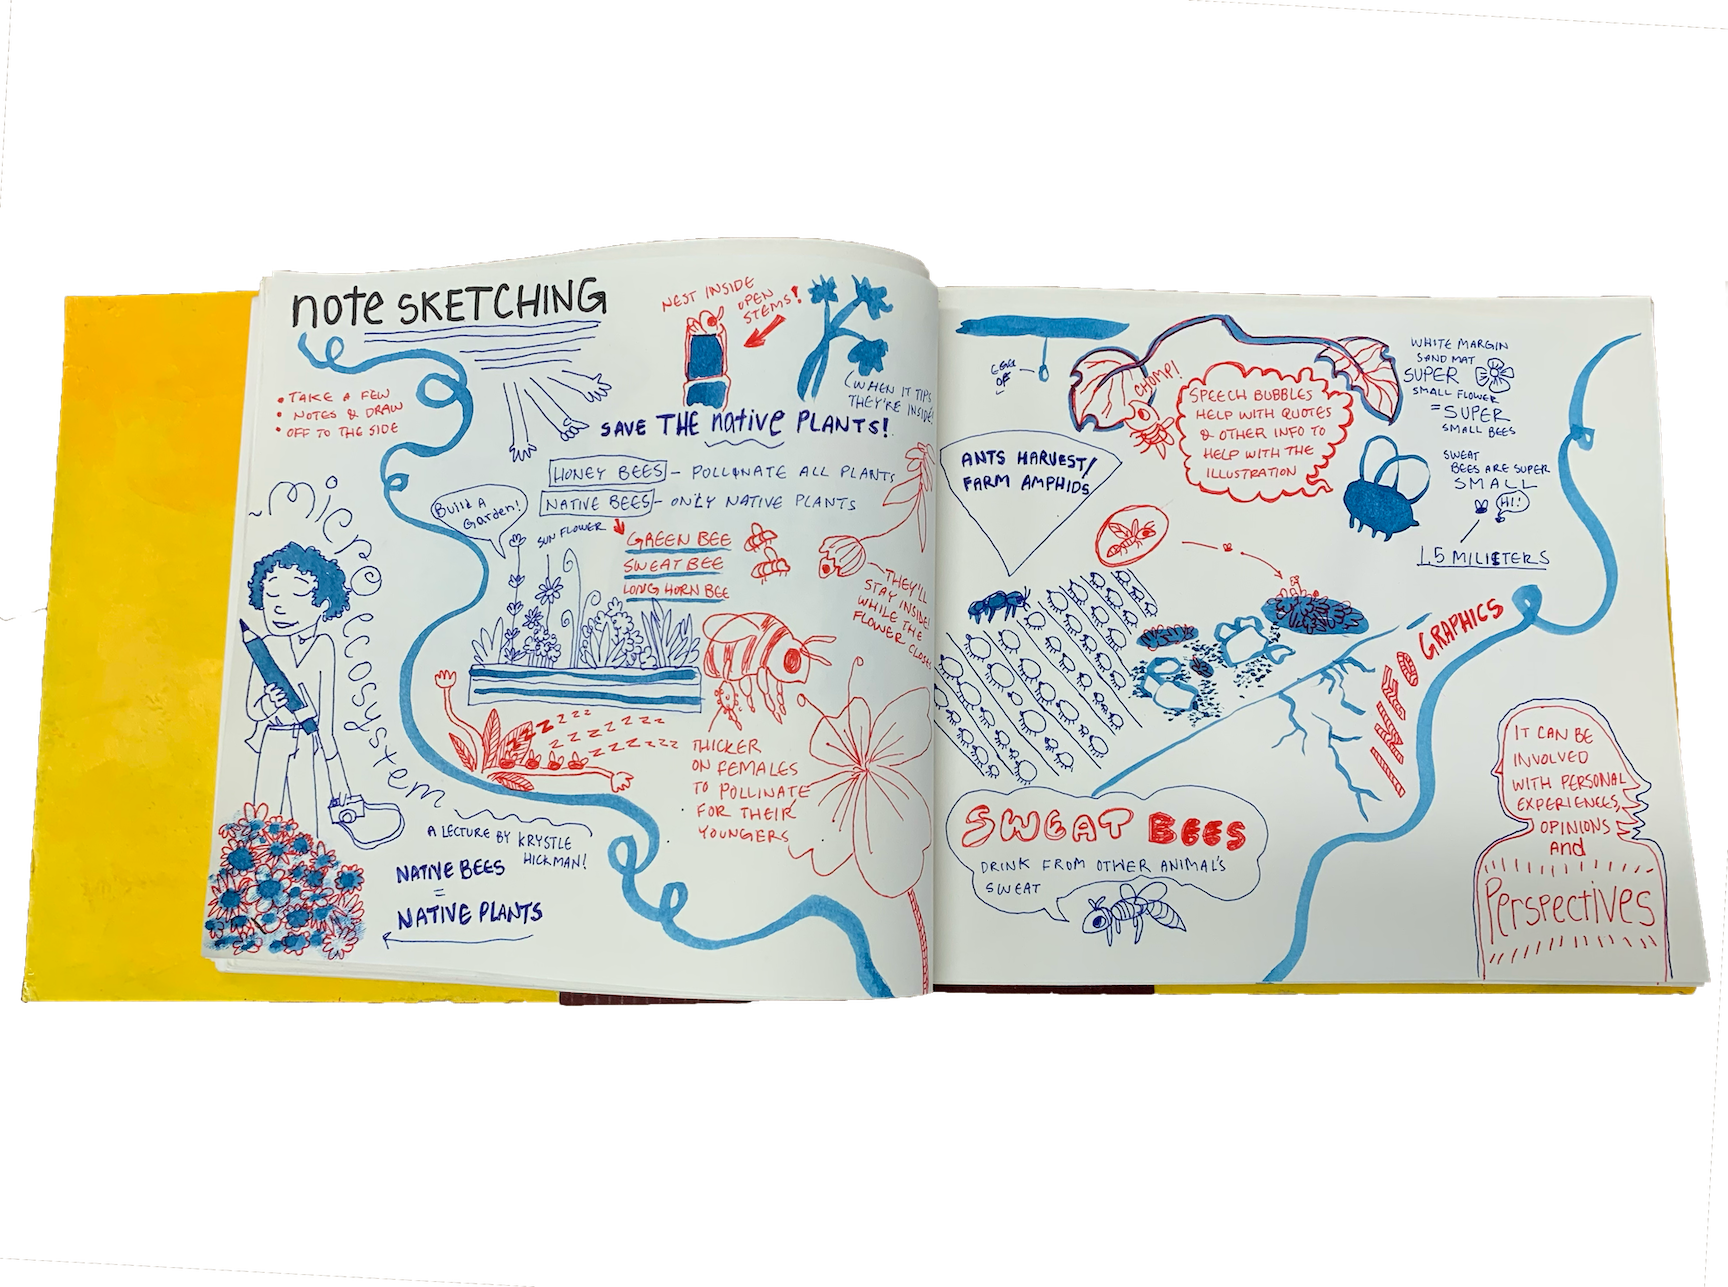 note SKETCHING
• TAKE A FEW
• NOTES & DRAW
• OFF TO THE SIDE
Microecosystem
A LECTURE BY KRYSTLE
HICKMAN!
NATIVE BEES
=
NATIVE PLANTS
NEST INSIDE
OPEN
STEMS!
(WHEN IT TIPS
THEY'RE INSIDE!
SAVE THE native PLANTS!
HONEY BEES - POLLONATE ALL PLANTS
NATIVE BEES - ONLY NATIVE PLANTS
Build A
Garden!
SUN FLOWER
GREEN BEE
SWEAT BEE
LONG HORN BEE
THEY'LL
STAY INSIDE
WHILE THE
FLOWER CLOSES
zzzzzzz
zzzzzzzz
zzzzzzz
THICKER
ON FEMALES
TO POLLINATE
FOR THEIR
YOUNGERS
CHOMP!
SPEECH BUBBLES
HELP WITH QUOTES
& OTHER INFO TO
HELP WITH THE
ILLUSTRATION
WHITE MARGIN
SAND MAT
SUPER
SMALL FLOWER
= SUPER
SMALL BEES
SWEAT
BEES ARE SUPER
SMALL
HI!
1.5 MILISTERS
ANTS HARVEST/
FARM AMPHIDS
GRAPHICS
SWEAT BEES
DRINK FROM OTHER ANIMAL'S
SWEAT
IT CAN BE
INVOLVED
WITH PERSONAL
EXPERIENCES,
OPINIONS
and
Perspectives